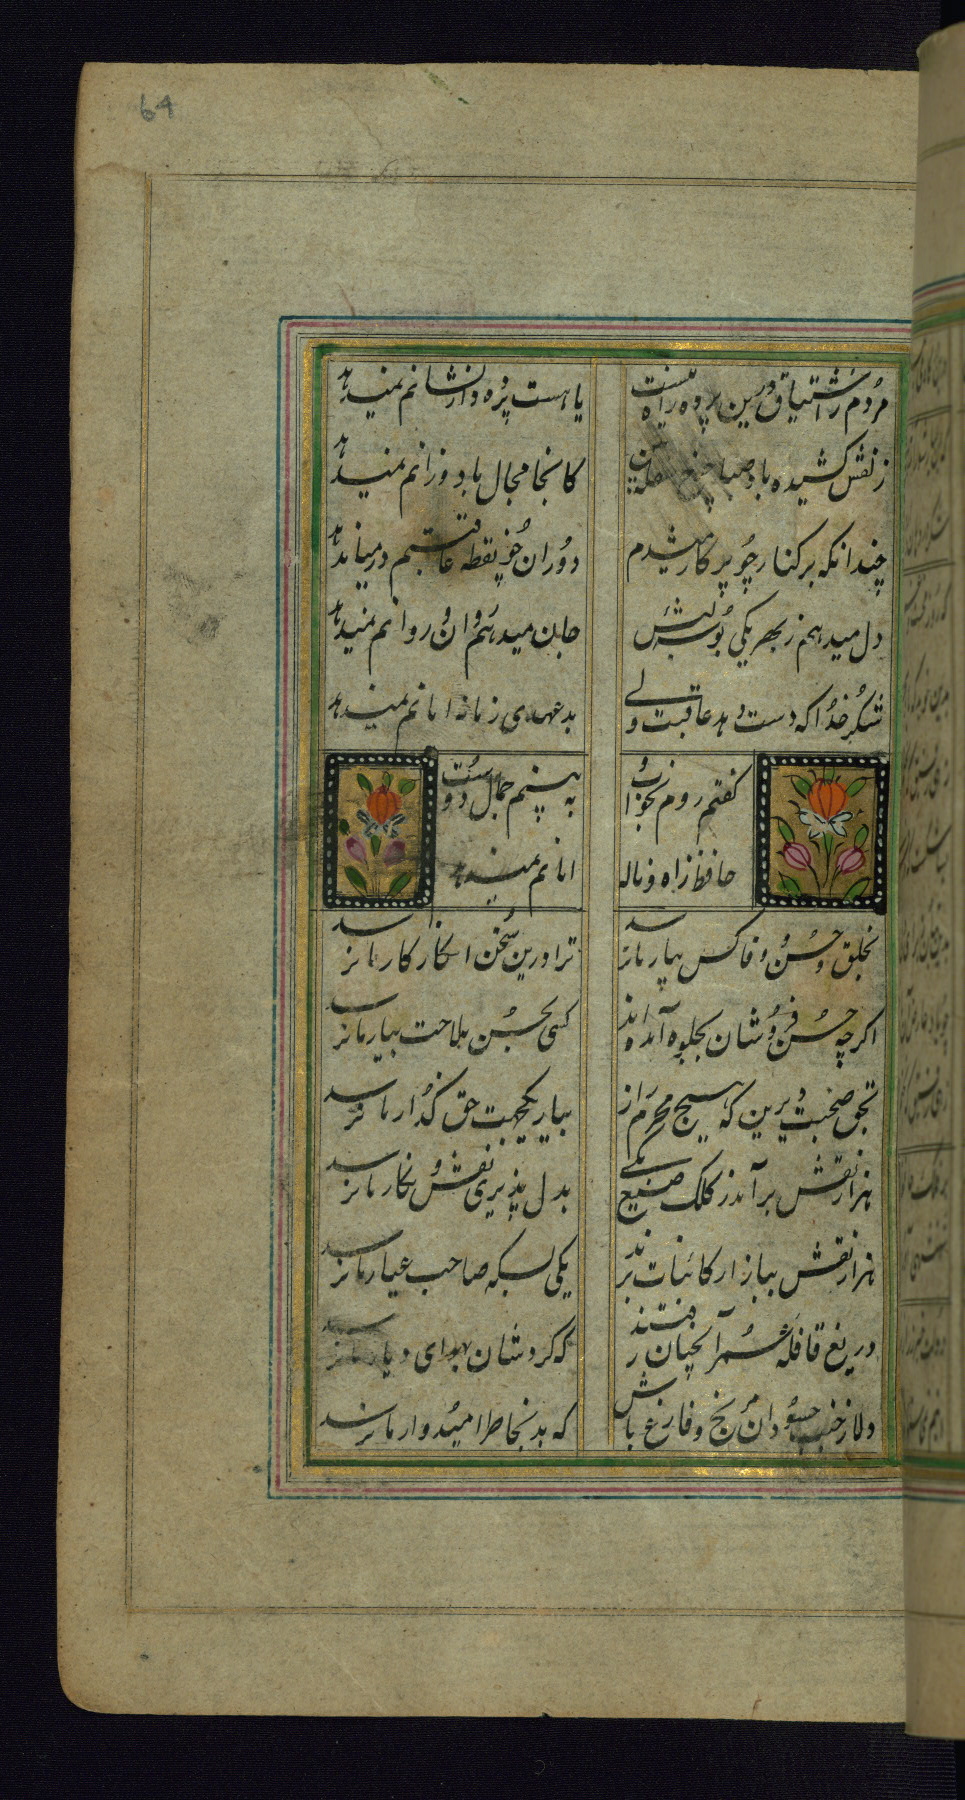 64
مردم ز اشتیاق و درین پرده راه نیست
یا هست پرده دار نشانم نمیدهد
زلفش کشیده باد صبا چرخ سفله بین
کانجا مجال باد وزانم نمیدهد
چندانکه بر کنار چو پرکار میشدم
دوران چو نقطه عاقبتم در میان نداد
دل میدهم ز بهر یکی بوسه لبش
جان میدهم و آن روانم نمیدهد
شکر خدا که دست دهد عاقبت ولی
بدعهدی زمانه امانم نمیدهد
گفتم روم بخواب
به بینم جمال دوست
حافظ ز آه و ناله
امانم نمیدهد
بخلق و حسن و وفا کس بیار ما نرسد
ترا درین سخن انکار کار ما نرسد
اگر چه حسن فروشان بجلوه آمده اند
کسی بحسن ملاحت بیار ما نرسد
بحق صحبت دیرین که هیچ محرم راز
بیار یکجهت حق گذار ما نرسد
هزار نقش برآمد ز کلک صنع یکی
بدلپذیری نقش نگار ما نرسد
هزار نقش ببازار کائنات برند
یکی بسکه صاحب عیار ما نرسد
دریغ قافله عمر آنچنان رفتند
که گردشان بهوای دیار ما نرسد
دلا ز خبث حسودان مرنج و فارغ باش
که بد بخاطر امیدوار ما نرسد